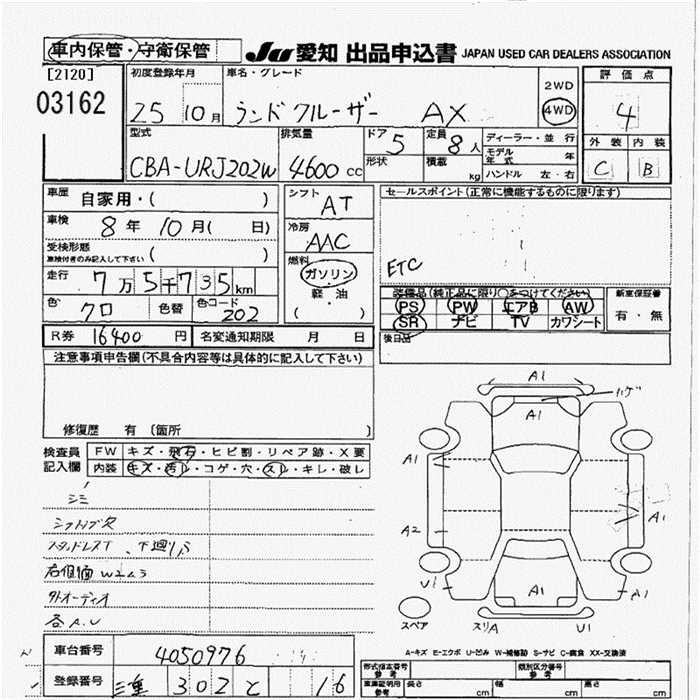 車内保管・守衛保管
JU 愛知 出品申込書 JAPAN USED CAR DEALERS ASSOCIATION
[2120]
03162
初度登録年月
25 10月
車名・グレード
ランドクルーザー AX
2WD
4WD
評価点
4
外装 内装
C B
型式
CBA-URJ202W
排気量
4600 cc
ドア 5
形状
定員 8人
積載 kg
ディーラー・並行
モデル年式 年
ハンドル 左・右
車歴 自家用・( )
車検 8年 10月( 日)
受検形態
車検付きのみ記入して下さい ( )
走行 7万5千735km
色 クロ 色替 色コード 202
シフト AT
冷房 AAC
燃料
ガソリン
軽・油
( )
セールスポイント(正常に機能するものに限ります)
ETC
装備品(純正品に限り○をつけてください)
PS PW エアB AW
SR ナビ TV カワシート
新車保証書
有・無
後日品
R券 16400円 名変通知期限 月 日
注意事項申告欄(不具合内容等は具体的に記入して下さい)
修復歴 有 (箇所 )
検査員
記入欄
FW キズ・飛石・ヒビ割・リペア跡・X要
内装 キズ・汚レ・コゲ・穴・スレ・キレ・破レ
シミ
シフトノブ欠
スタッドレスT、下廻りS
外オーディオ
各A.U
A1
ハゲ
A1
A1
A2
A1
U1
A1
A1
スペア スリA U1
A-キズ E-エクボ U-凹み W-補修跡 S-サビ C-腐食 XX-交換済
車台番号 4050976
登録番号 三重 302 と 16
形式指定番号
参考
類別区分番号
参考
車庫証明用
参考
長さ cm 幅 cm 高さ cm